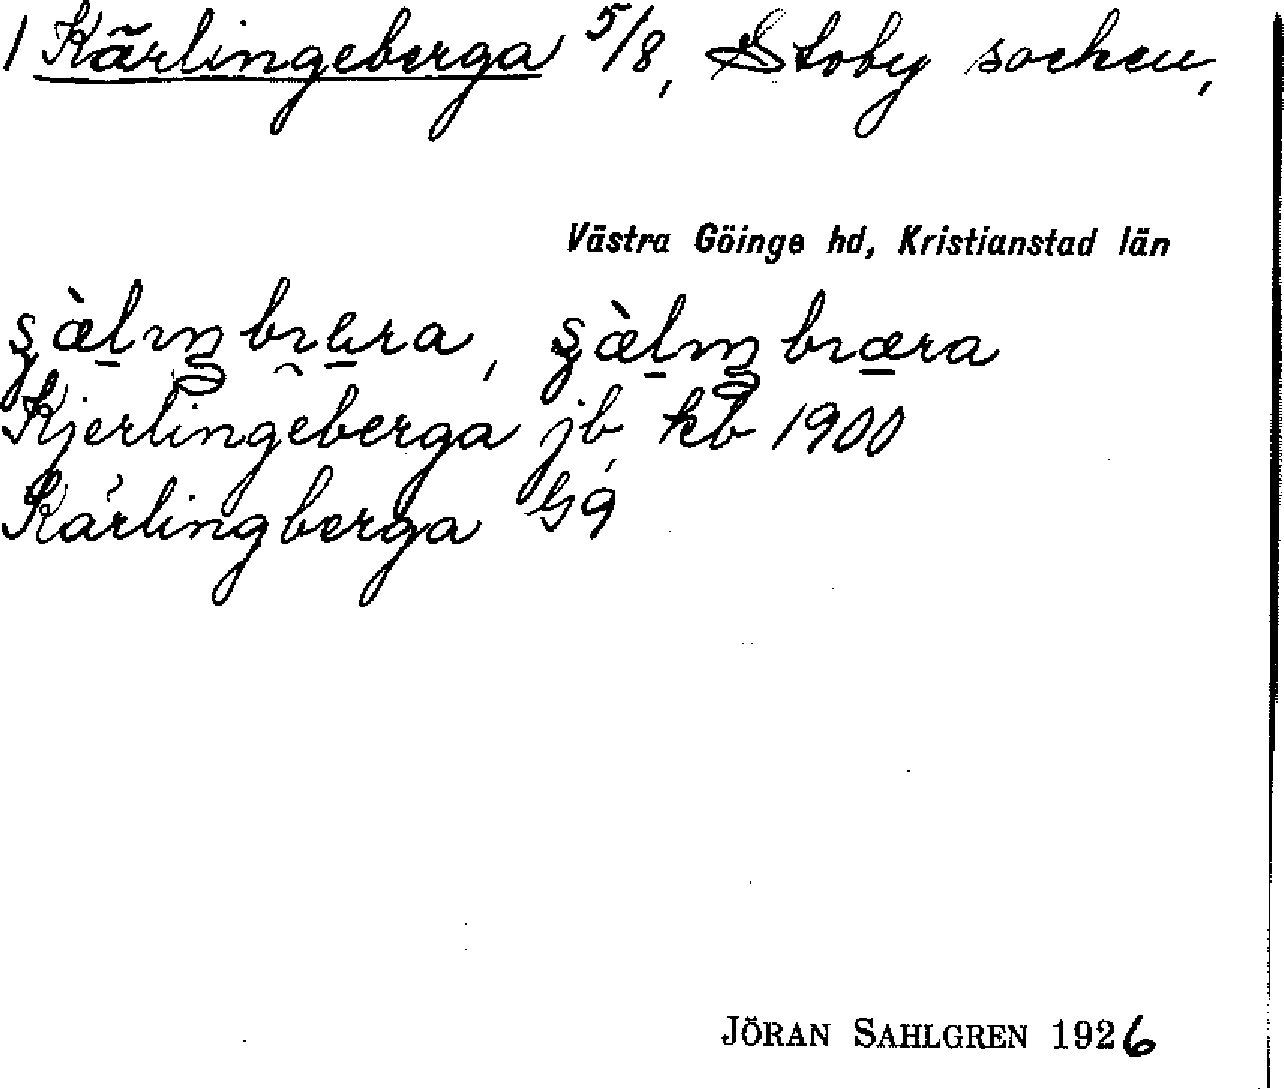 1 Kärlingeberga 5/8, Stoby socken,
Västra Göinge hd, Kristianstad län
Kjerlingeberga jb, kb 1900
Kärlingberga
JÖRAN SAHLGREN 1926